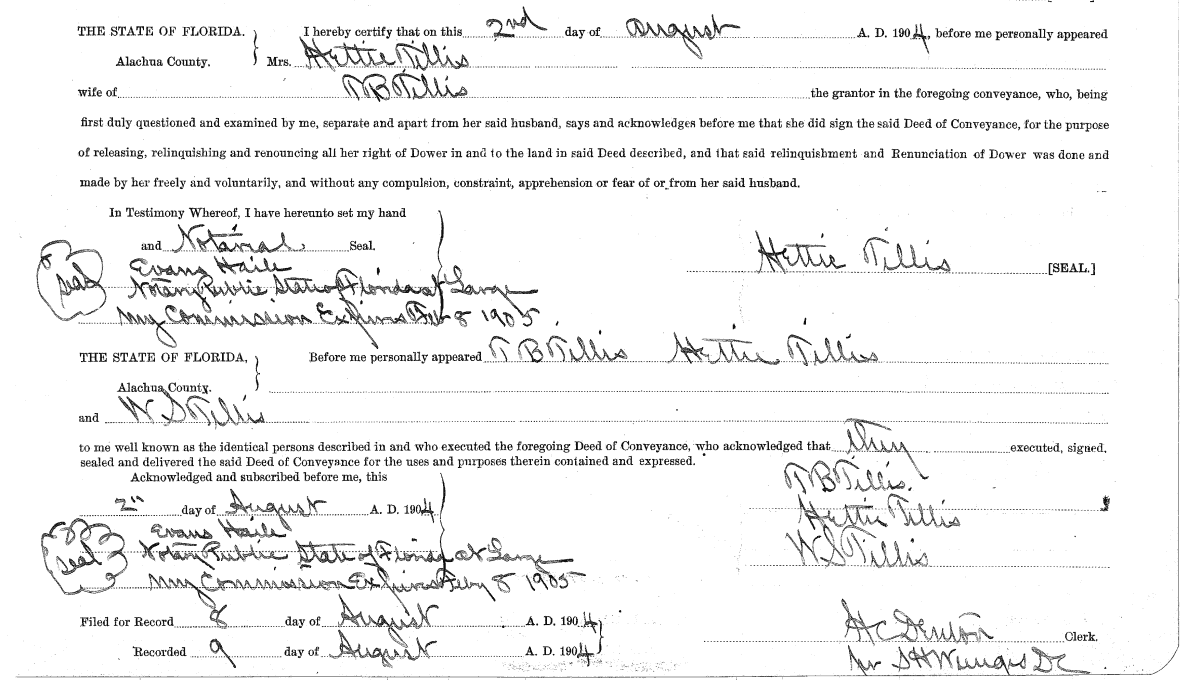 THE STATE OF FLORIDA. } I hereby certify that on this 2nd day of August A. D. 1904, before me personally appeared
Alachua County. Mrs. Hettie Tillis
wife of T B Tillis the grantor in the foregoing conveyance, who, being
first duly questioned and examined by me, separate and apart from her said husband, says and acknowledges before me that she did sign the said Deed of Conveyance, for the purpose
of releasing, relinquishing and renouncing all her right of Dower in and to the land in said Deed described, and that said relinquishment and Renunciation of Dower was done and
made by her freely and voluntarily, and without any compulsion, constraint, apprehension or fear of or from her said husband.
In Testimony Whereof, I have hereunto set my hand
and Notarial Seal.
Hettie Tillis [SEAL.]
Seal
Evans Haile
Notary Public State of Florida at Large
My Commission Expires Feb 8 1905
THE STATE OF FLORIDA, } Before me personally appeared T B Tillis Hettie Tillis
Alachua County.
and W S Tillis
to me well known as the identical persons described in and who executed the foregoing Deed of Conveyance, who acknowledged that they executed, signed,
sealed and delivered the said Deed of Conveyance for the uses and purposes therein contained and expressed.
Acknowledged and subscribed before me, this
2" day of August A. D. 1904
T B Tillis.
Hettie Tillis
W S Tillis
Seal
Evans Haile
Notary Public State of Florida at Large
My Commission Expires Feby 8 1905
Filed for Record 8 day of August A. D. 1904
Recorded 9 day of August A. D. 1904
H C Denton Clerk.
per S H DC